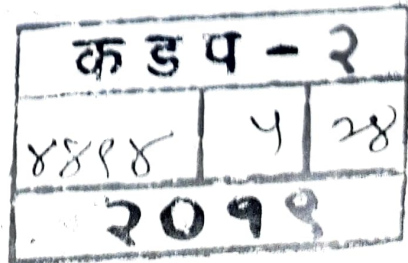 कडप - २
४४१४ ५ २४
२०१९